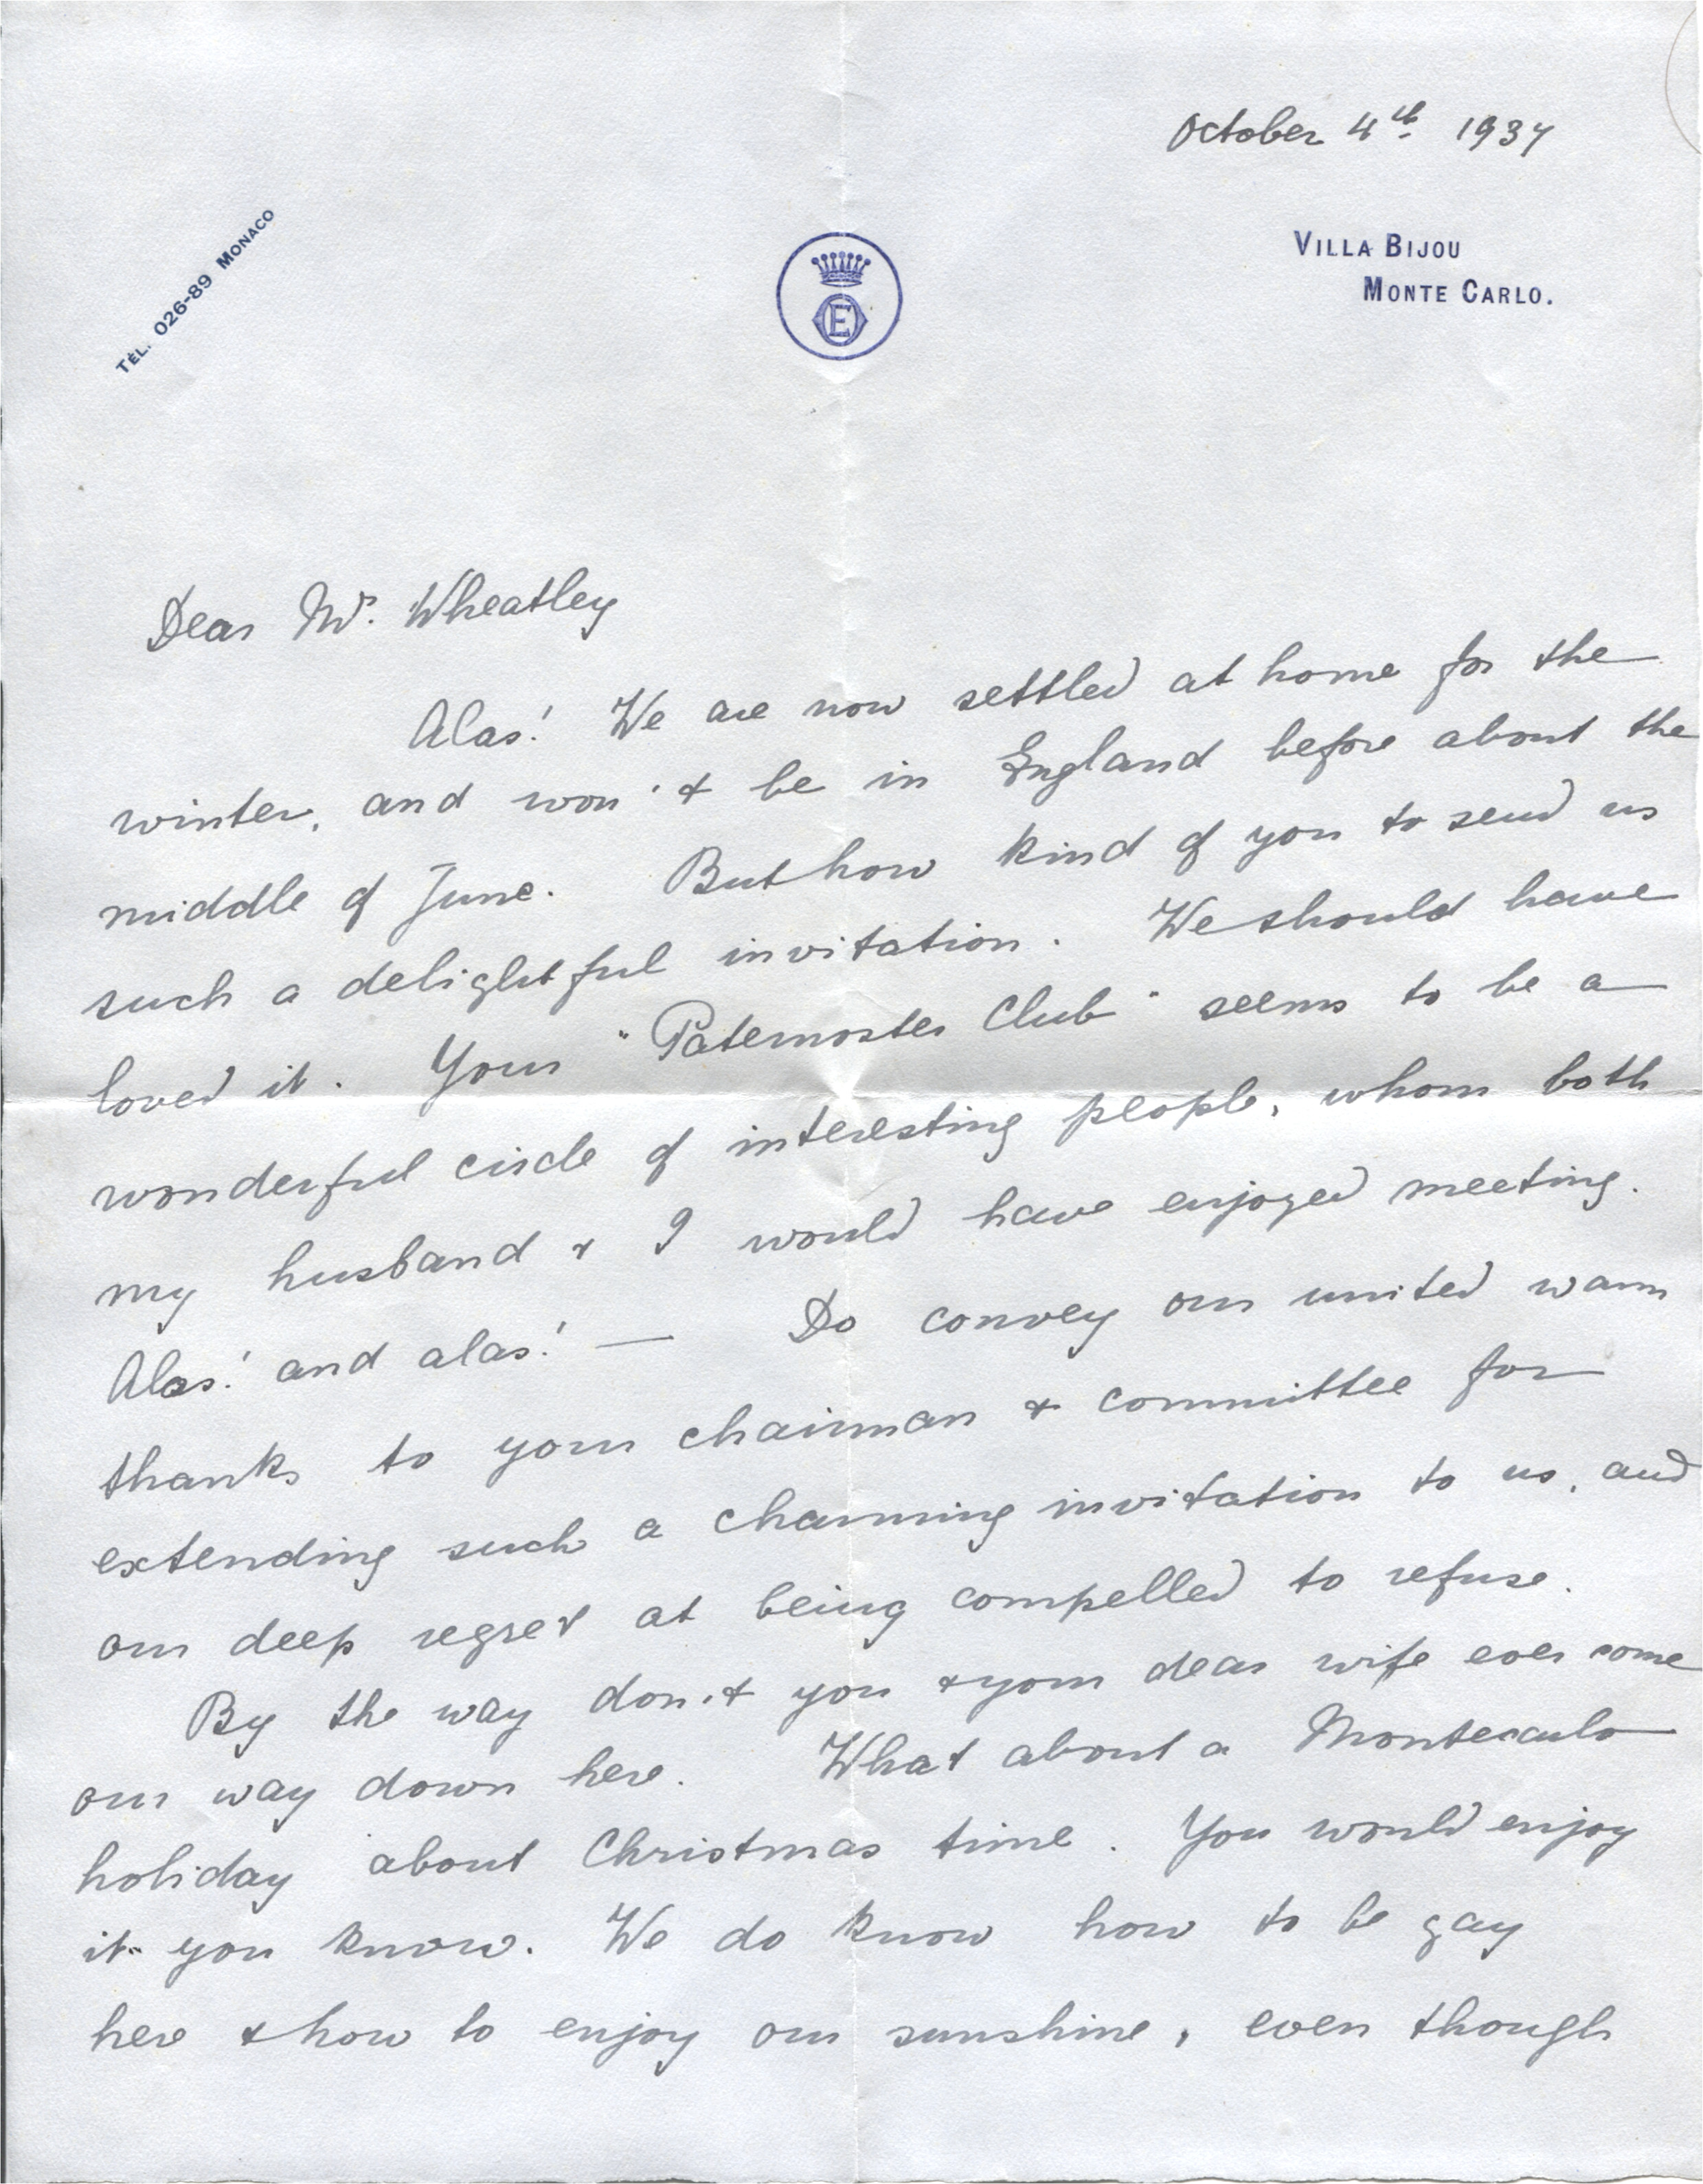 October 4th 1937
TÉL. 026-89 MONACO
OE
VILLA BIJOU
MONTE CARLO.
Dear Mr. Wheatley
Alas! We are now settled at home for the
winter, and won't be in England before about the
middle of June. But how kind of you to send us
such a delightful invitation. We should have
loved it. Your "Paternoster Club" seems to be a
wonderful circle of interesting people, whom both
my husband & I would have enjoyed meeting.
Alas! and alas! — Do convey our united warm
thanks to your chairman & committee for
extending such a charming invitation to us, and
our deep regret at being compelled to refuse.
By the way don't you & your dear wife ever come
our way down here. What about a Montecarlo
holiday about Christmas time. You would enjoy
it you know. We do know how to be gay
here & how to enjoy our sunshine, even though